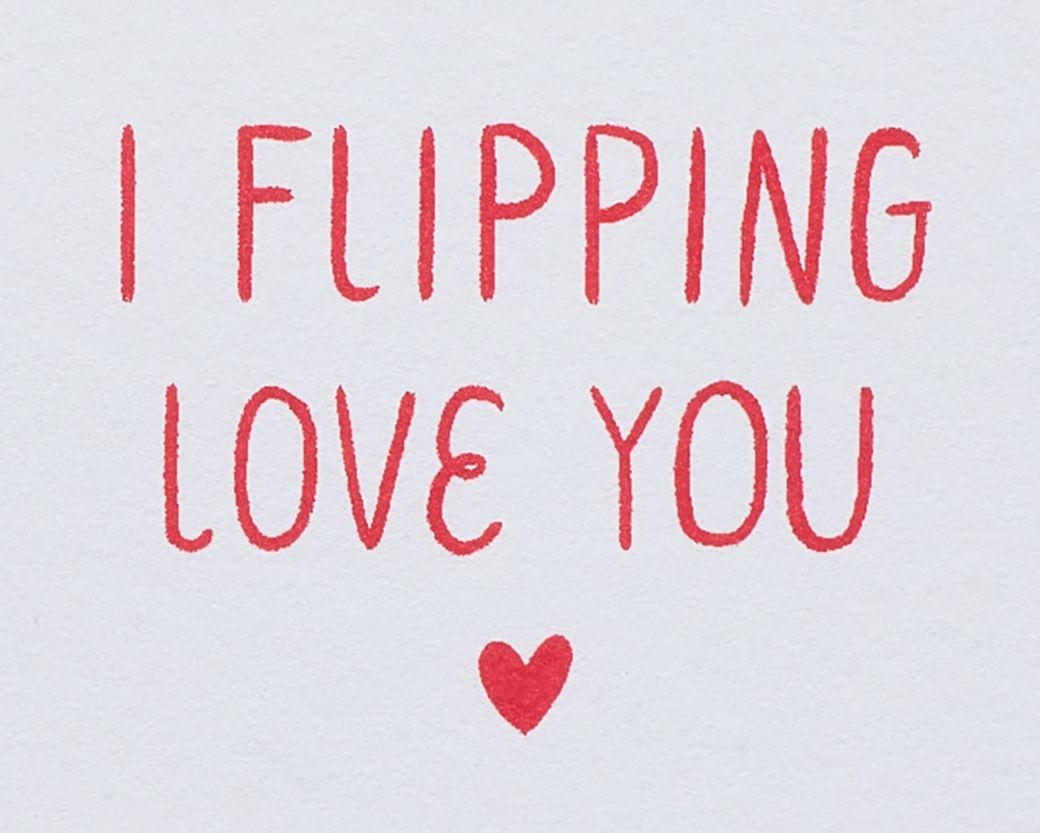 I FLIPPING
LOVE YOU